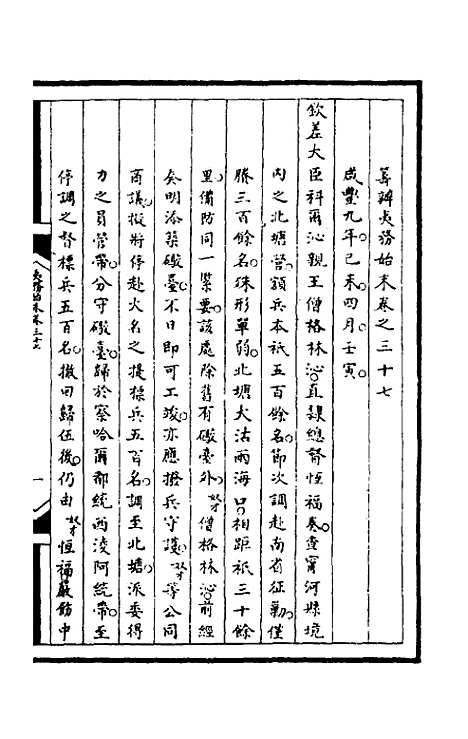 籌辦夷務始末卷之三十七
咸豐九年己未四月壬寅
欽差大臣科爾沁親王僧格林沁直隸總督恆福奏查甯河縣境
內之北塘營額兵本祇五百餘名節次調赴尚省征勦僅
賸三百餘名殊形單弱北塘大沽兩海口相距祇三十餘
里備防同一緊要該處除舊有礮臺外奴才僧格林沁前經
奏明添築礮臺不日即可工竣亦應撥兵守護奴才等公同
商議擬將停赴火名之提標兵五百名調至北塘派委得
力之員管帶分守礮臺歸於察哈爾都統西淩阿統帶至
停調之督標兵五百名撤回歸伍後仍由奴才恆福嚴飭中
夷務始末卷三十七
一